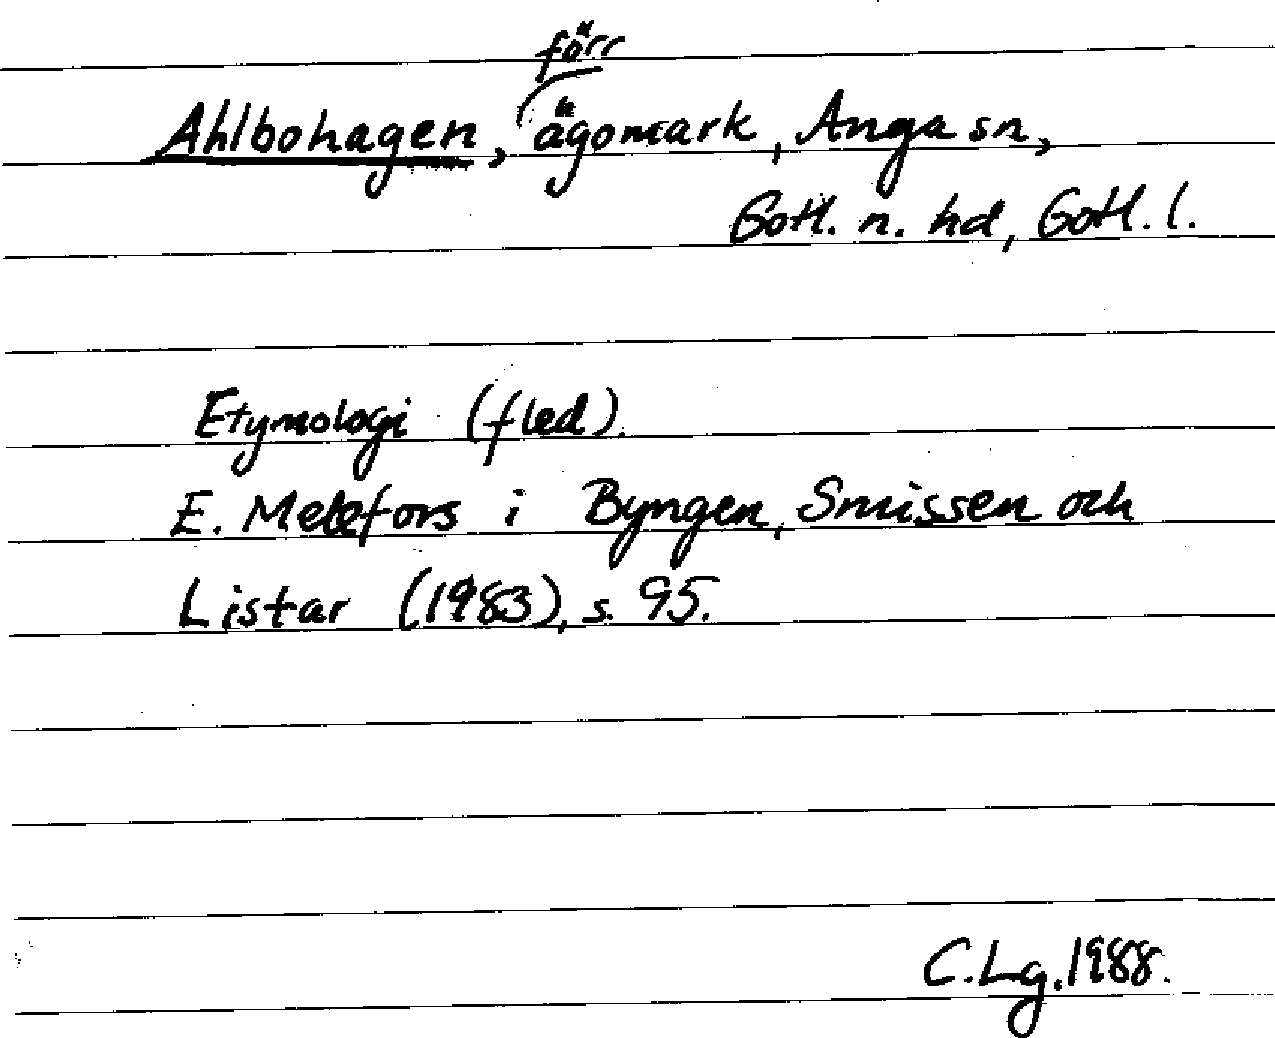 Ahlbohagen, förr ägomark, Anga sn,
Gotl. n. hd, Gotl. l.
Etymologi (fled).
E. Melefors i Byngen, Smissen och
Listar (1983), s. 95.
C.Lg. 1988.